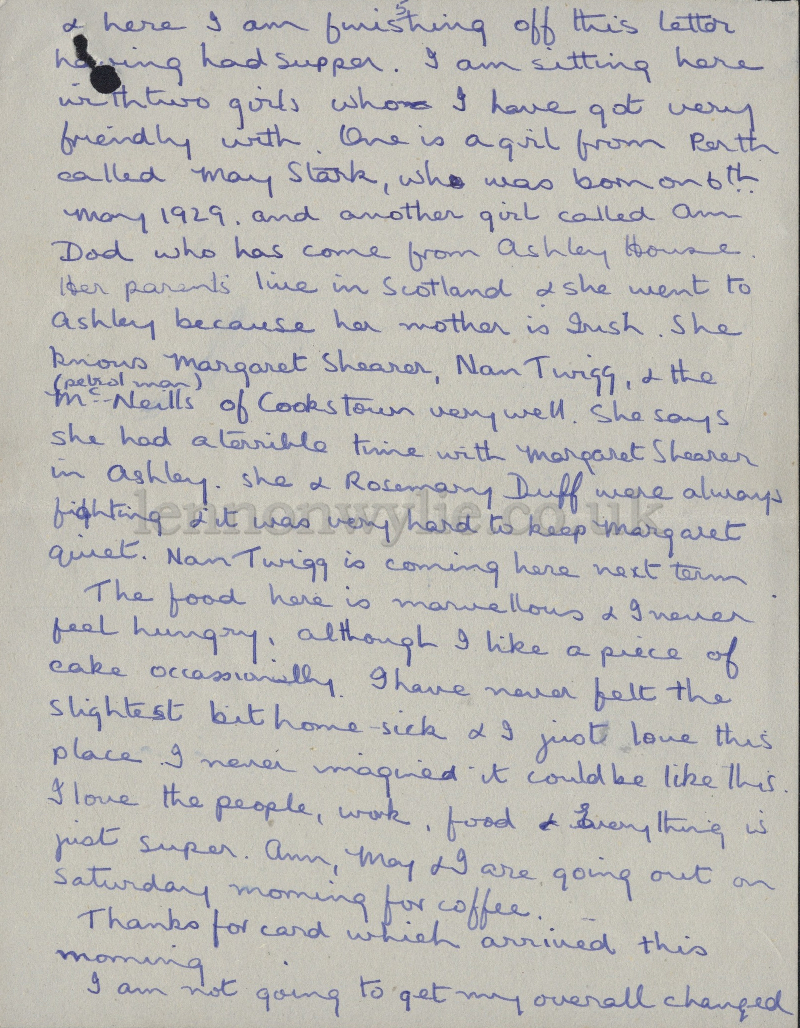 5
& here I am finishing off this letter
having had supper. I am sitting here
with two girls whom I have got very
friendly with. One is a girl from Perth
called May Stark, who was born on 6th
May 1929. and another girl called Ann
Dod who has come from Ashley House.
Her parents live in Scotland & she went to
Ashley because her mother is Irish. She
knows Margaret Shearer, Nan Twigg, & the
(petrol man)
McNeills of Cookstown very well. She says
she had a terrible time with Margaret Shearer
in Ashley. she & Rosemary Duff were always
fighting & it was very hard to keep Margaret
quiet. Nan Twigg is coming here next term
The food here is marvellous & I never
feel hungry, although I like a piece of
cake occassionilly. I have never felt the
slightest bit home-sick & I just love this
place. I never imagined it could be like this.
I love the people, work, food & Everything is
just super. Ann, May & I are going out on
Saturday morning for coffee.
Thanks for card which arrived this
morning
I am not going to get my overall changed
lennonwylie.co.uk